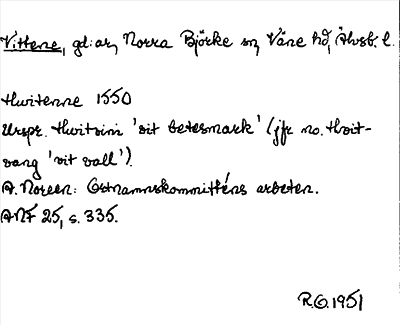 Vittene, gd:ar, Norra Björke sn, Väne hd, Älvsb. l.
Hwitenne 1550
Urspr. Hvitvini 'vit betesmark' (jfr no. Hvit-
vang 'vit vall').
A. Noreen: Ortnamnskommitténs arbeten.
ANF 25, s. 335.
R.G. 1951